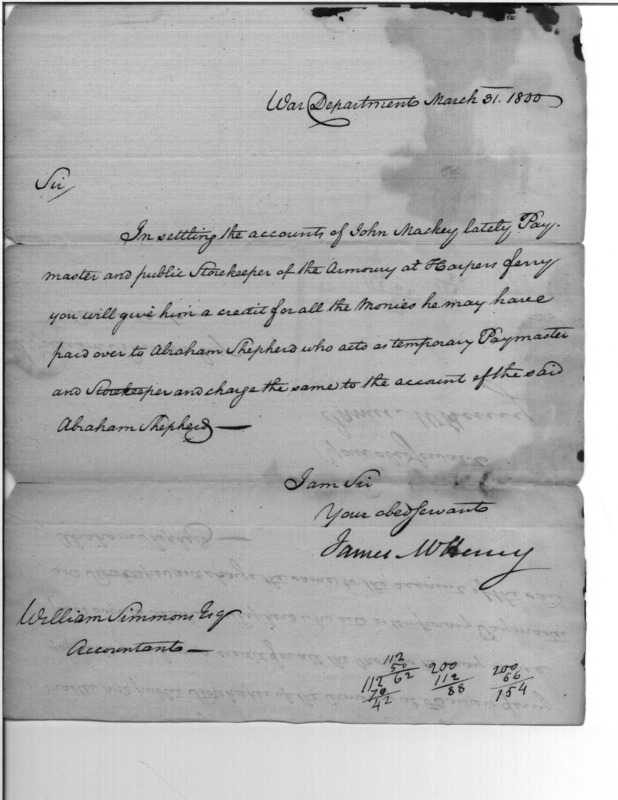 War Department March 31. 1800
Sir,
In settling the accounts of John Mackey lately Pay-
master and public Storekeeper of the Armoury at Harpers ferry
you will give him a credit for all the Monies he may have
paid over to Abraham Shepherd who acts as temporary Paymaster
and Storekeeper and charge the same to the account of the said
Abraham Shepherd —
I am Sir
Your obed Servant
James McHenry
William Simmons Esq
Accountant —
112
50
62
112
70
42
200
112
88
200
66
154